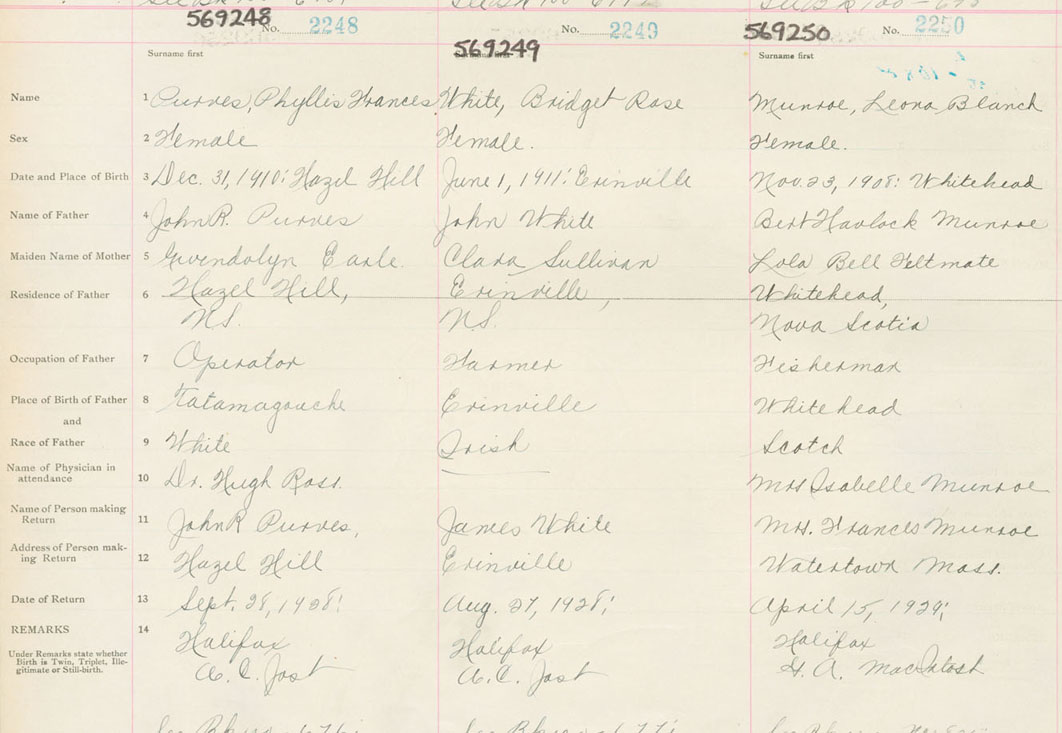 569248 No. 2248
569249 No. 2249
569250 No. 2250
Surname first Surname first Surname first
Name 1 Purves, Phyllis Frances White, Bridget Rose Munroe, Leona Blanch
Sex 2 Female Female. Female.
Date and Place of Birth 3 Dec. 31, 1910: Hazel Hill June 1, 1911: Erinville Nov. 23, 1908: Whitehead
Name of Father 4 John R. Purves John White Bert Havlock Munroe
Maiden Name of Mother 5 Gwendolyn Earle. Clara Sullivan Lola Bell Feltmate
Residence of Father 6 Hazel Hill, Erinville, Whitehead,
N.S. N.S. Nova Scotia
Occupation of Father 7 Operator Farmer Fisherman
Place of Birth of Father 8 Tatamagouche Erinville Whitehead
and
Race of Father 9 White Irish Scotch
Name of Physician in
attendance 10 Dr. Hugh Ross. Mrs Isabelle Munroe
Name of Person making
Return 11 John R Purves, James White Mrs. Frances Munroe
Address of Person mak-
ing Return 12 Hazel Hill Erinville Watertown Mass.
Date of Return 13 Sept. 28, 1928: Aug. 27, 1928; April 15, 1929;
REMARKS 14 Halifax Halifax Halifax
Under Remarks state whether
Birth is Twin, Triplet, Ille-
gitimate or Still-birth.
A. C. Jost A. C. Jost H. A. MacIntosh